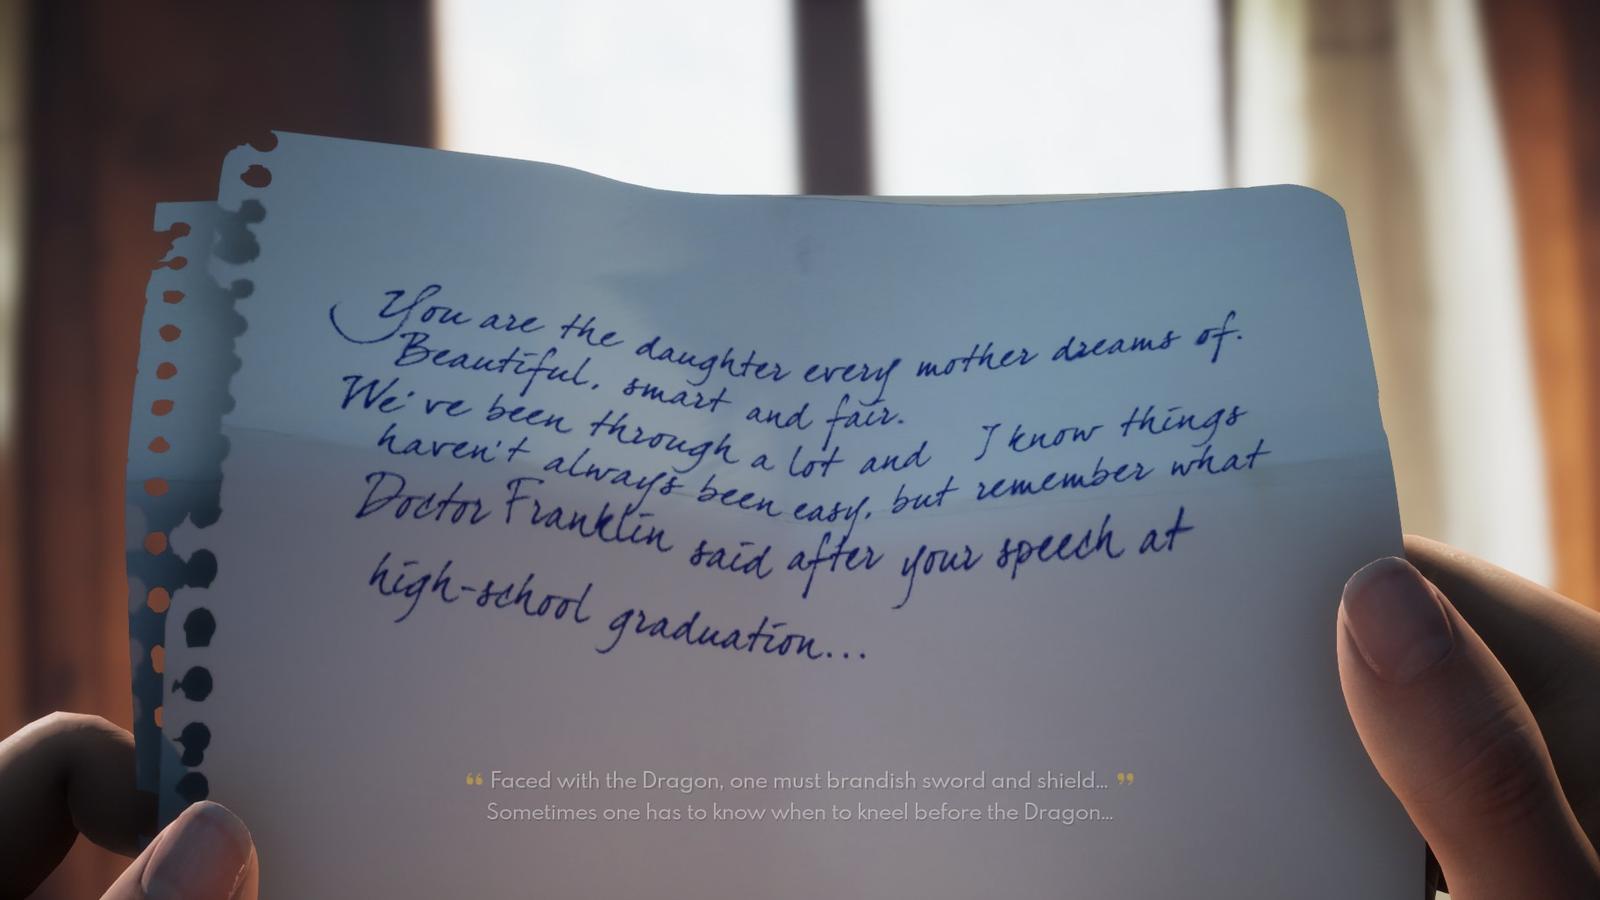 You are the daughter every mother dreams of.
Beautiful, smart and fair.
We've been through a lot and I know things
haven't always been easy, but remember what
Doctor Franklin said after your speech at
high-school graduation...
“ Faced with the Dragon, one must brandish sword and shield... ”
Sometimes one has to know when to kneel before the Dragon...